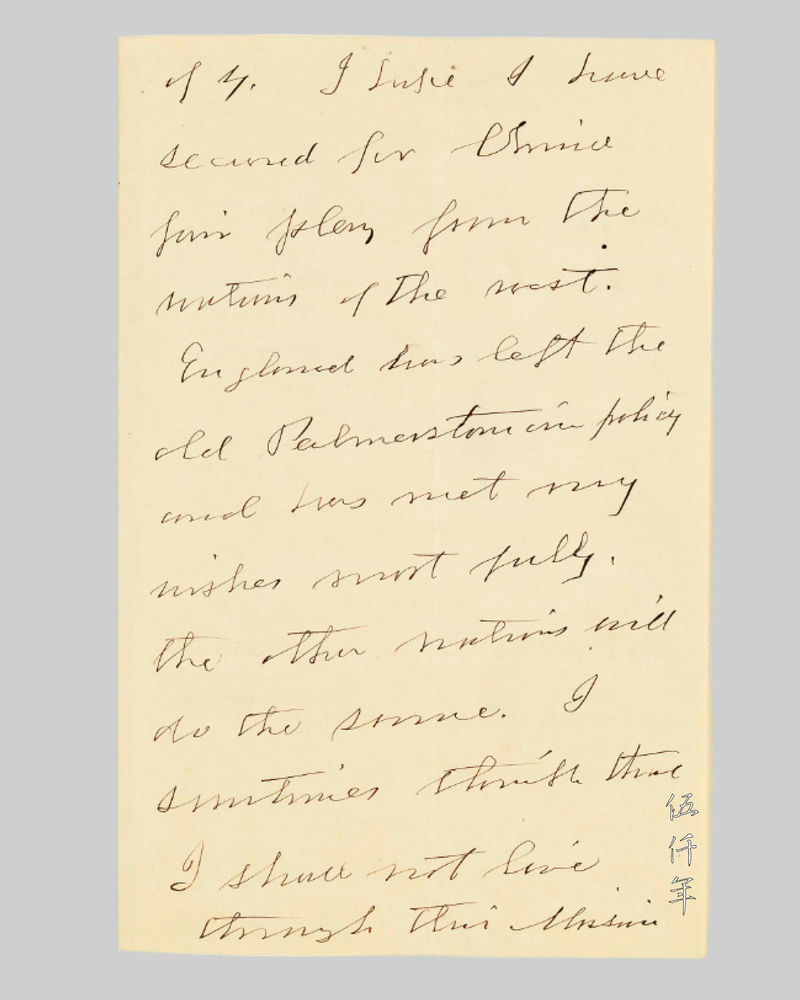 of 4. I I have
secured for China
fair play from the
nations of the west.
England has left the
old Palmerstonian policy
and has met my
wishes most fully.
the other nations will
do the same. I
sometimes think that
I shall not live
through this Mission
伍仟年